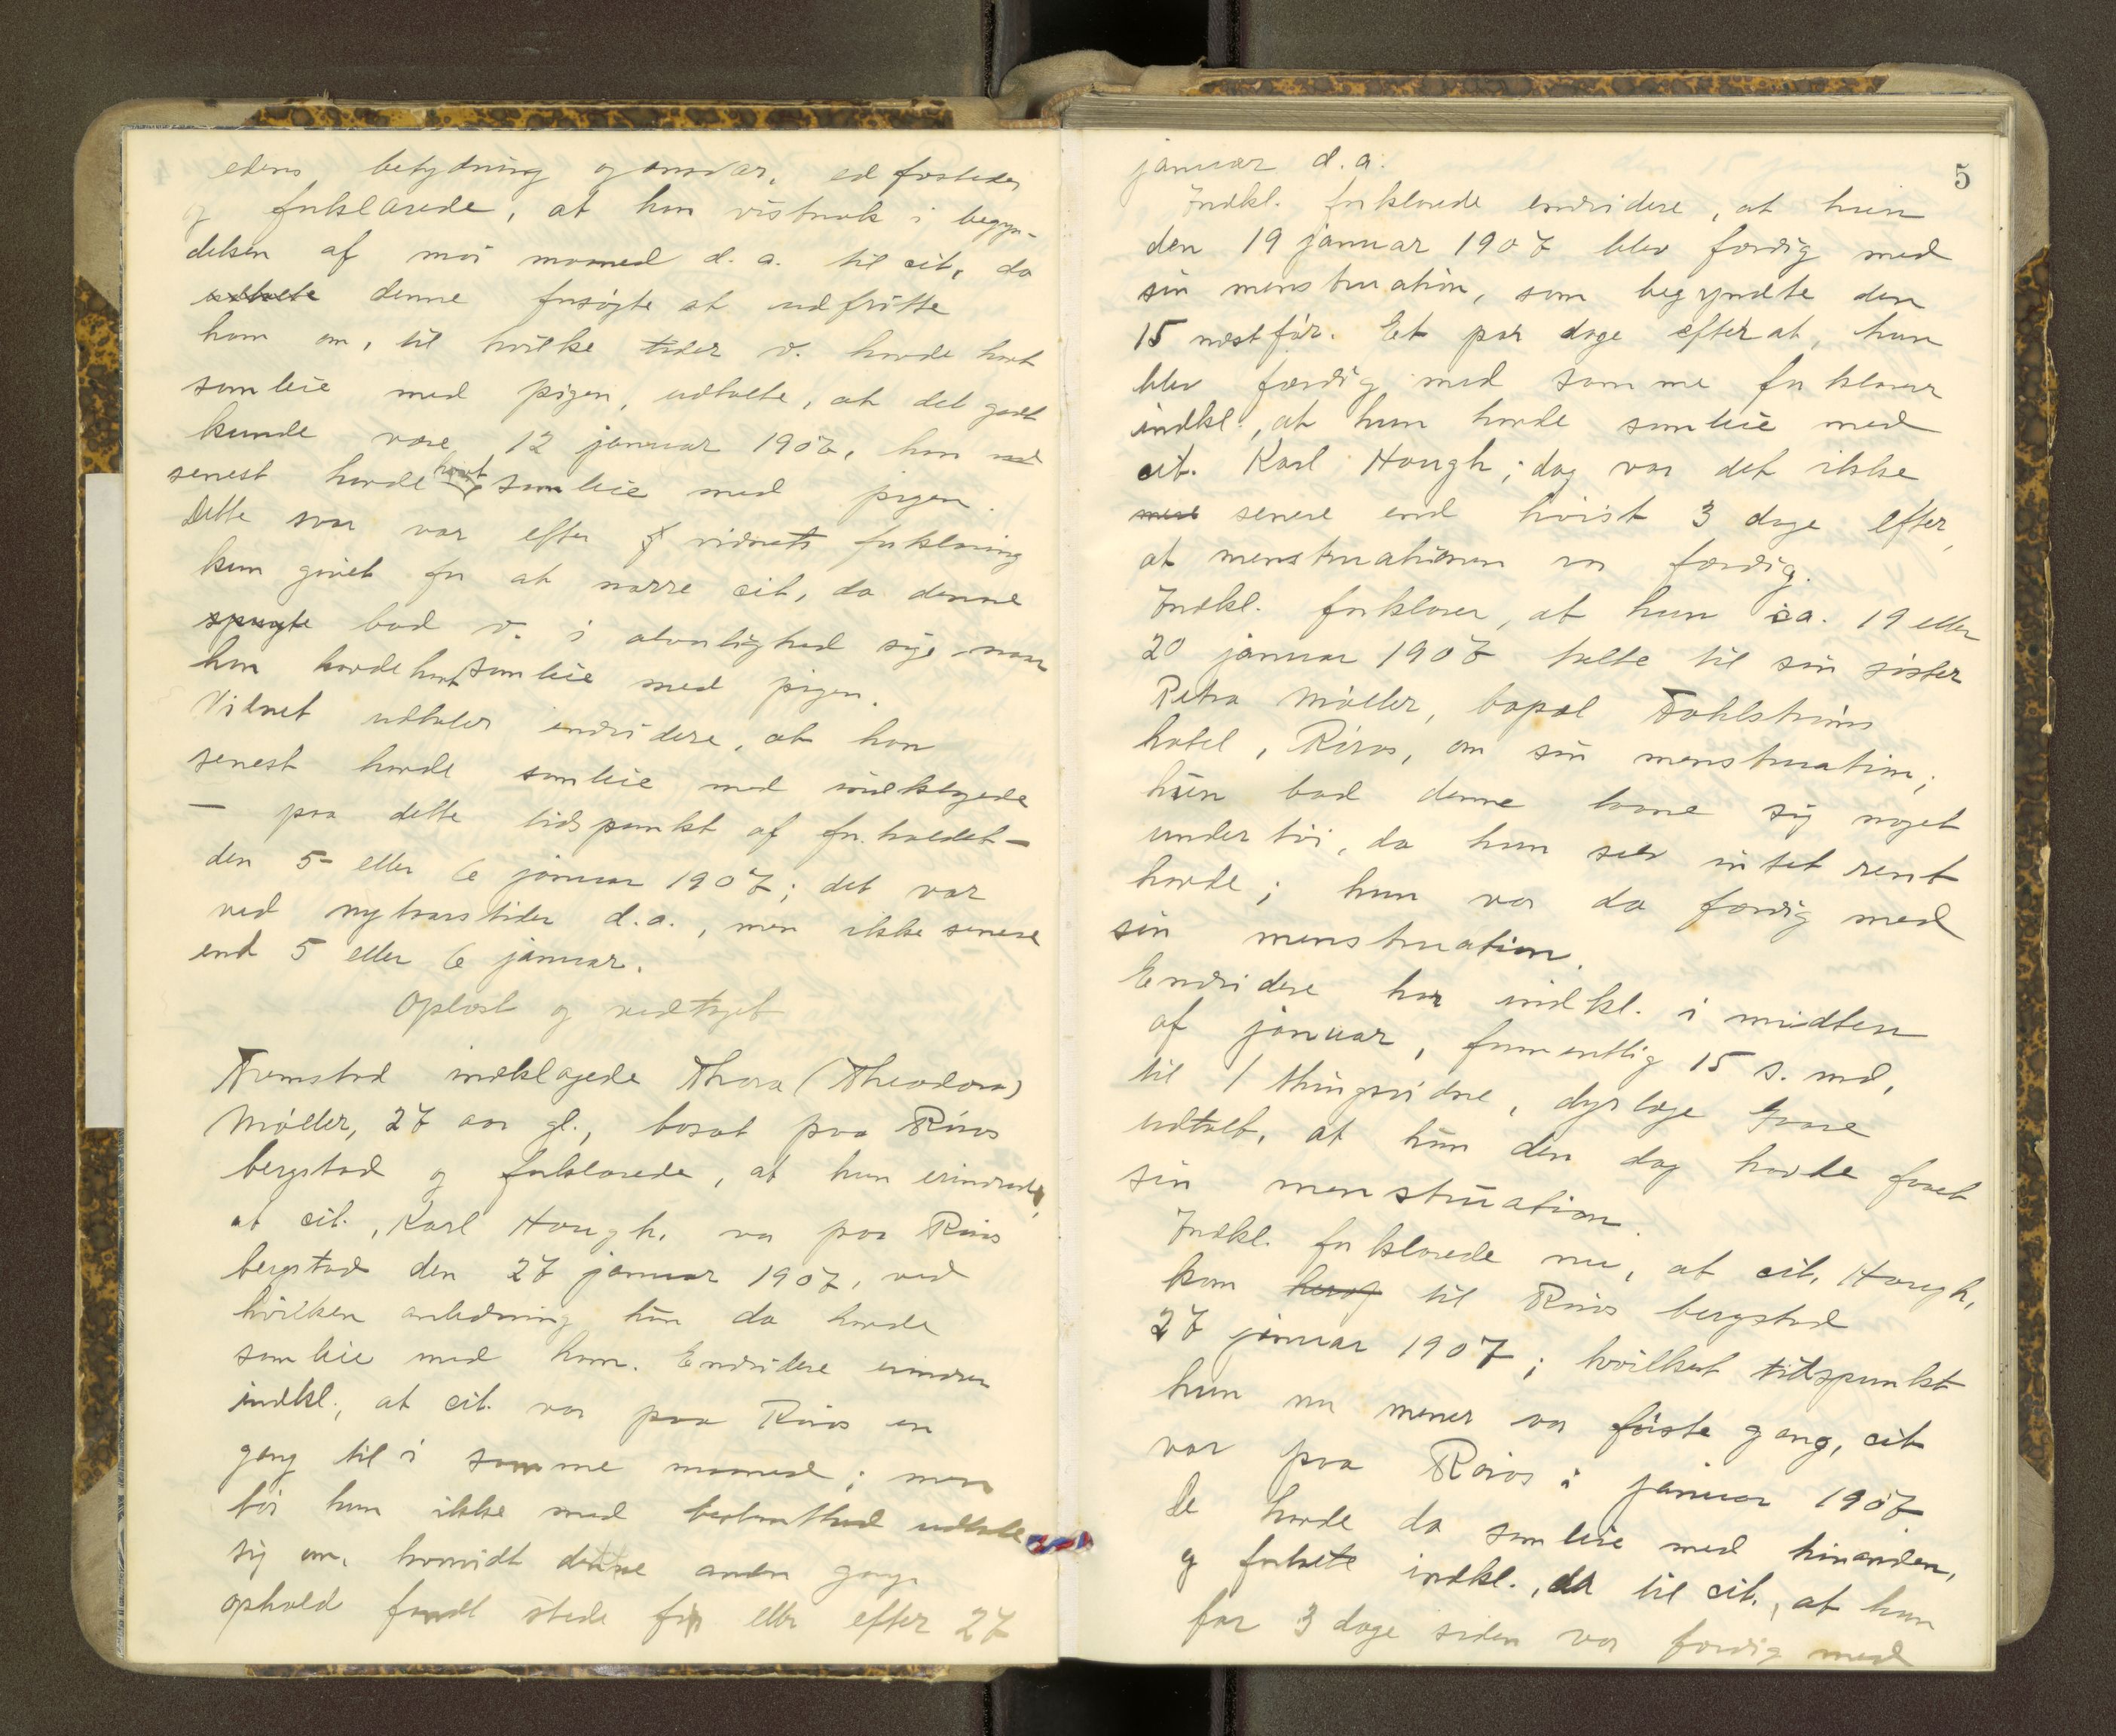 edens betydning og ansvar, ed fæstedes
og forklarede, at han vistnok i begyn-
delsen af mai maaned d. a. til cit., da
udtalte denne forsøgte at udfritte
ham om, til hvilke tider v. havde havt
samleie med pigen, udtalte, at det godt
kunde være 12 januar 1907, han
senest havde havt samleie med pigen.
Dette svar var efter vidnets forklaring
kun givet for at narre cit., da denne
spurgte bad v. i alvorlighed sige naar
han havde havt samleie med pigen.
Vidnet udtaler endvidere, at han
senest havde samleie med indklagede
– paa dette tidspunkt af forholdet –
den 5 eller 6 januar 1907; det var
ved nytaarstider d. a., men ikke senere
end 5 eller 6 januar.
Oplæst og vedtaget
Fremstod indklagede Thora (Theodora)
Møller, 27 aar gl., bosat paa Røros
bergstad og forklarede, at hun erindrede,
at cit., Karl Hough, var paa Røros
bergstad den 27 januar 1907, ved
hvilken anledning hun da havde
samleie med ham. Endvidere erindrer
indkl., at cit. var paa Røros en
gang til i samme maaned; men
tør hun ikke med bestemthed udtale
sig om, hvorvidt denne anden gangs
ophold fandt stede før eller efter 27
5
januar d. a.
Indkl. forklarede endvidere, at hun
den 19 januar 1907 blev færdig med
sin menstruation, som begyndte den
15 næstfør. Et par dage efter at, hun
blev færdig med samme forklarer
indkl., at hun havde samleie med
cit. Karl Hough; dog var det ikke
mere senere end høist 3 dage efter,
at menstruationen var færdig.
Indkl. forklarer, at hun ca. 19 eller
20 januar 1907 talte til sin søster
Petra Møller, bopæl Fahlstrøms
hotel, Røros, om sin menstruation;
hun bad denne laane sig noget
undertøi, da hun selv intet rent
havde; hun var da færdig med
sin menstruation.
Endvidere har indkl. i midten
af januar, formentlig 15 s. md.,
til 1 thingsvidne, dyrlæge
udtalt, at hun den dag havde faaet
sin menstruation.
Indkl. forklarede nu, at cit. Hough,
kom til Røros bergstad
27 januar 1907; hvilket tidspunkt
hun nu mener var første gang, cit
var paa Røros i januar 1907.
De havde da samleie med hinanden,
og fortalte indkl., da til cit., at hun
for 3 dage siden var færdig med